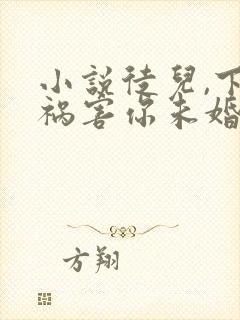 小說徒兒,下
祸害你未婚
方翔